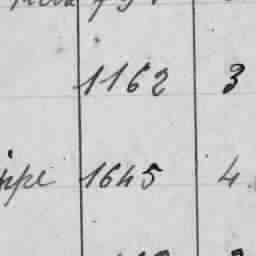 1162 3
ippe 1645 4